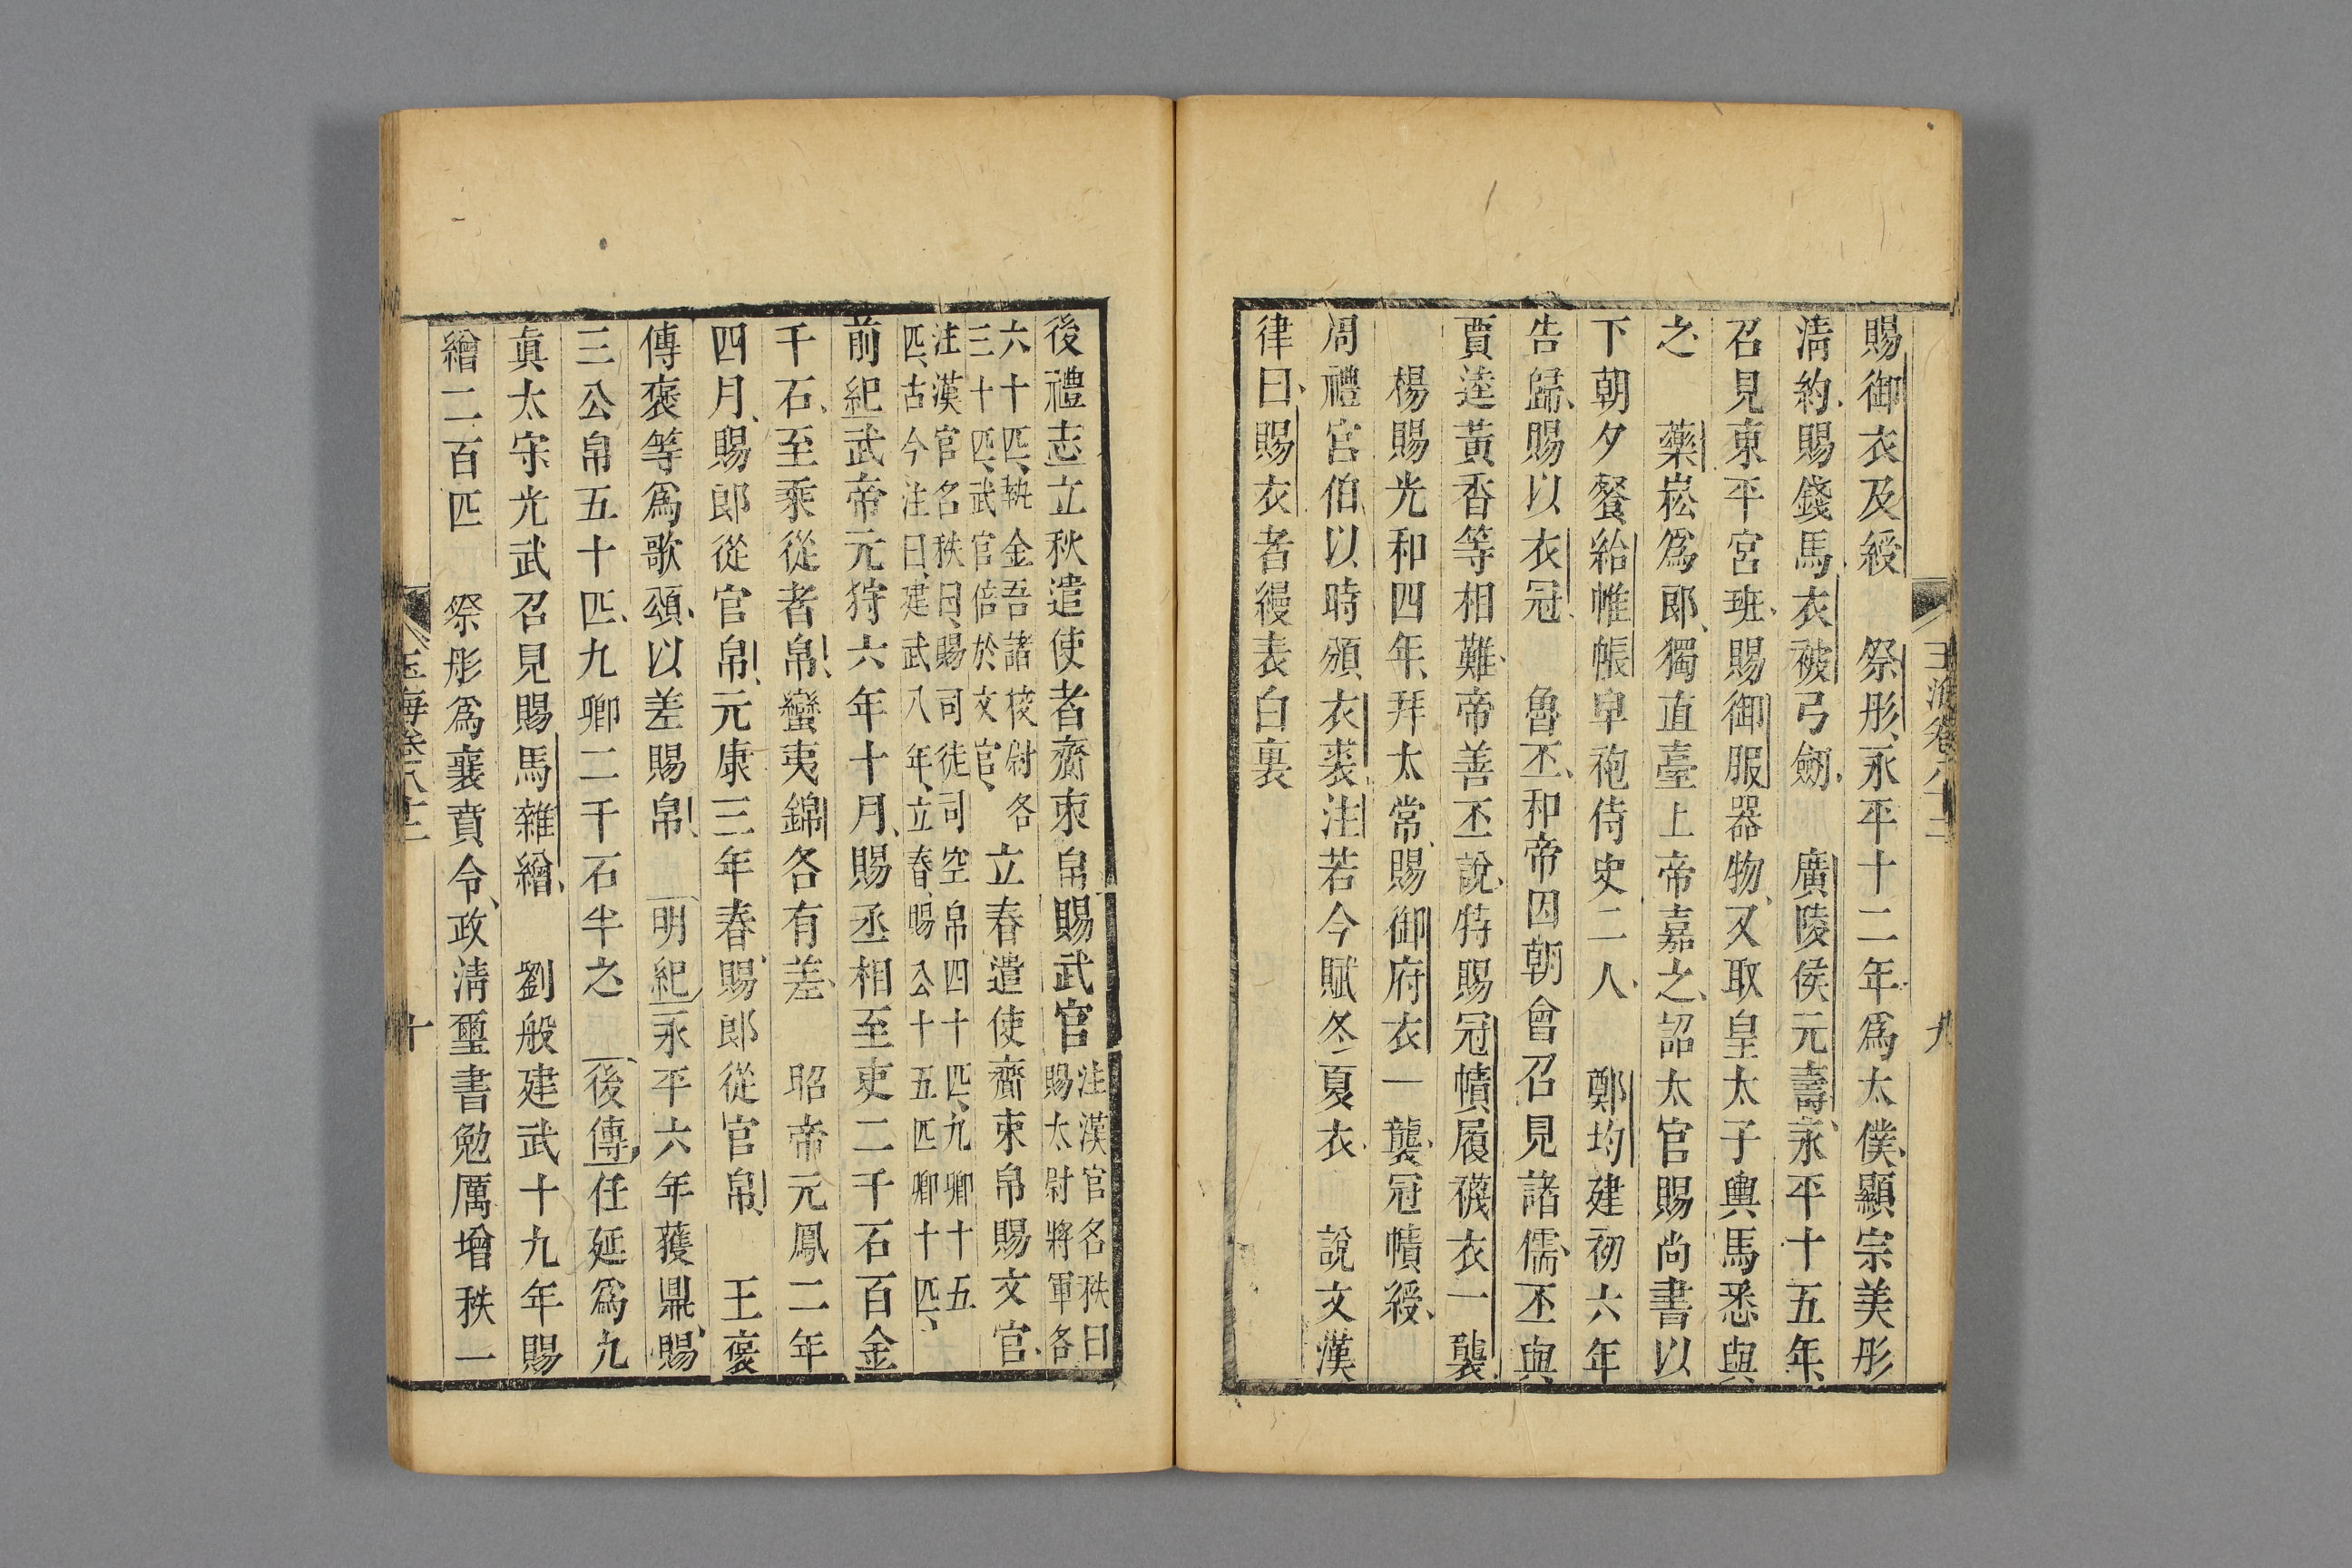 玉海卷八十二 九
賜御衣及綬 祭肜永平十二年爲太僕顯宗美肜
淸約賜錢馬衣被弓劒 廣陵侯元壽永平十五年
召見東平宮班賜御服器物又取皇太子輿馬悉與
之 藥崧爲郎獨直臺上帝嘉之詔太官賜尚書以
下朝夕餐給帷帳皁袍侍史二人 鄭均建初六年
告歸賜以衣冠 魯丕和帝因朝會召見諸儒丕與
賈逵黃香等相難帝善丕說特賜冠幘履襪衣一襲
楊賜光和四年拜太常賜御府衣一襲冠幘綬
周禮宮伯以時頒衣裘注若今賦冬夏衣 說文漢
律曰賜衣者縵表白裏
後禮志立秋遣使者齎束帛賜武官
注漢官名秩曰
賜太尉將軍各
六十匹執金吾諸校尉各
三十匹武官倍於文官
立春遣使齎束帛賜文官
注漢官名秩曰賜司徒司空帛四十匹九卿十五
匹古今注曰建武八年立春賜公十五匹卿十匹
前紀武帝元狩六年十月賜丞相至吏二千石百金
千石至乘從者帛蠻夷錦各有差 昭帝元鳳二年
四月賜郎從官帛元康三年春賜郎從官帛 王褒
傳褒等爲歌頌以差賜帛 明紀永平六年獲鼎賜
三公帛五十匹九卿二千石半之 後傳任延爲九
眞太守光武召見賜馬雜繒 劉般建武十九年賜
繒二百匹 祭肜爲襄賁令政淸璽書勉厲增秩一
玉海卷八十二 十